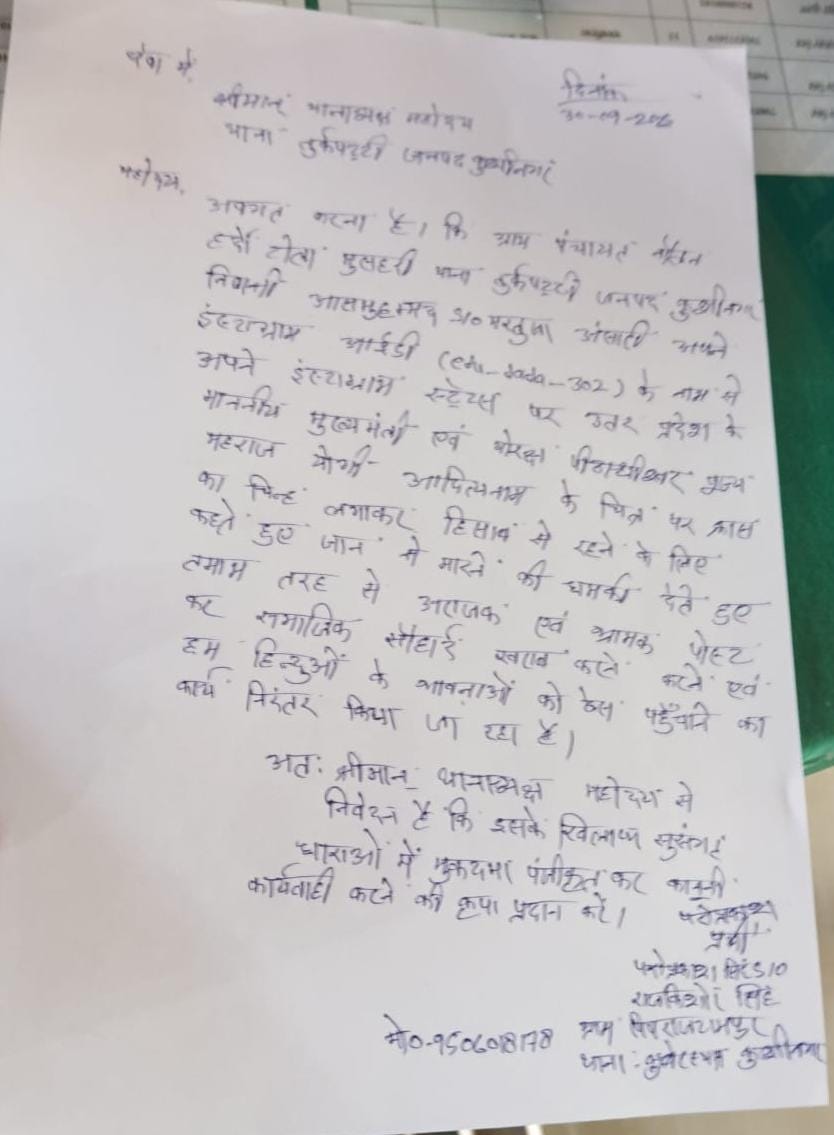 सेवा में,
दिनांक
श्रीमान् थानाध्यक्ष महोदय
30-09-202
थाना तुर्कपट्टी जनपद कुशीनगर
महोदय,
अवगत कराना है। कि ग्राम पंचायत
टोला मुसहरी थाना तुर्कपट्टी जनपद कुशीनगर
निवासी आसमुहम्मद S/o अंसारी अपने
इंस्टाग्राम आईडी (edu-dada-302) के नाम से
अपने इंस्टाग्राम स्टेटस पर उत्तर प्रदेश के
माननीय मुख्यमंत्री एवं गोरक्ष पीठाधीश्वर पूज्य
महराज योगी आदित्यनाथ के चित्र पर क्रास
का चिन्ह लगाकर हिसाब से रहने के लिए
कहते हुए जान से मारने की धमकी देते हुए
तमाम तरह से अराजक एवं भ्रामक पोस्ट
कर समाजिक सौहार्द खराब करने करने एवं
हम हिन्दुओं के भावनाओं को ठेस पहुँचाने का
कार्य निरंतर किया जा रहा है।
अतः श्रीमान् थानाध्यक्ष महोदय से
निवेदन है कि इसके खिलाफ सुसंगत
धाराओं में मुकदमा पंजीकृत कर कानूनी
कार्यवाही करने की कृपा प्रदान करें।
प्रार्थी
सिंह S/O
राजकिशोर सिंह
मो0-9506018178 ग्राम
थाना: कुशीनगर